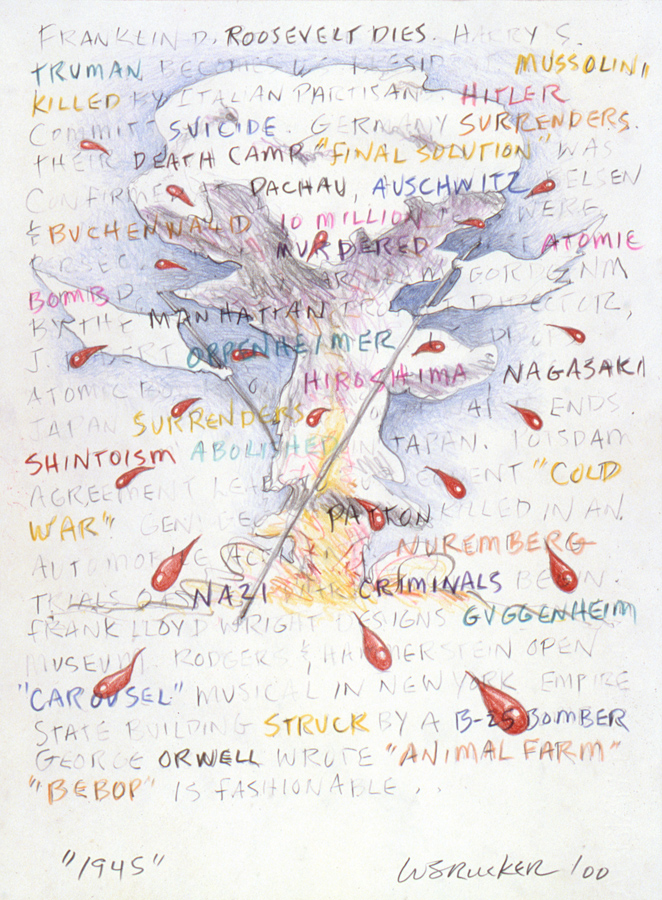 FRANKLIN D. ROOSEVELT DIES. HARRY S.
TRUMAN BECOMES U.S. PRESIDENT. MUSSOLINI
KILLED BY ITALIAN PARTISANS. HITLER
COMMITS SUICIDE. GERMANY SURRENDERS.
THEIR DEATH CAMP "FINAL SOLUTION" WAS
CONFIRMED AT DACHAU, AUSCHWITZ, BELSEN
& BUCHENWALD 10 MILLION WERE
MURDERED ATOMIC
BOMB
BY THE MANHATTAN PROJECT DIRECTOR,
J. ROBERT OPPENHEIMER
ATOMIC HIROSHIMA NAGASAKI
JAPAN SURRENDERS ENDS.
SHINTOISM ABOLISHED IN JAPAN. POTSDAM
AGREEMENT "COLD
WAR" GEN. PATTON KILLED IN AN
AUTOMOBILE NUREMBERG
TRIALS OF NAZI WAR CRIMINALS BEGIN.
FRANK LLOYD WRIGHT DESIGNS GUGGENHEIM
MUSEUM. RODGERS & HAMMERSTEIN OPEN
"CAROUSEL" MUSICAL IN NEW YORK EMPIRE
STATE BUILDING STRUCK BY A B-25 BOMBER
GEORGE ORWELL WROTE "ANIMAL FARM"
"BEBOP" IS FASHIONABLE . .
"1945" WSRUCKER '00